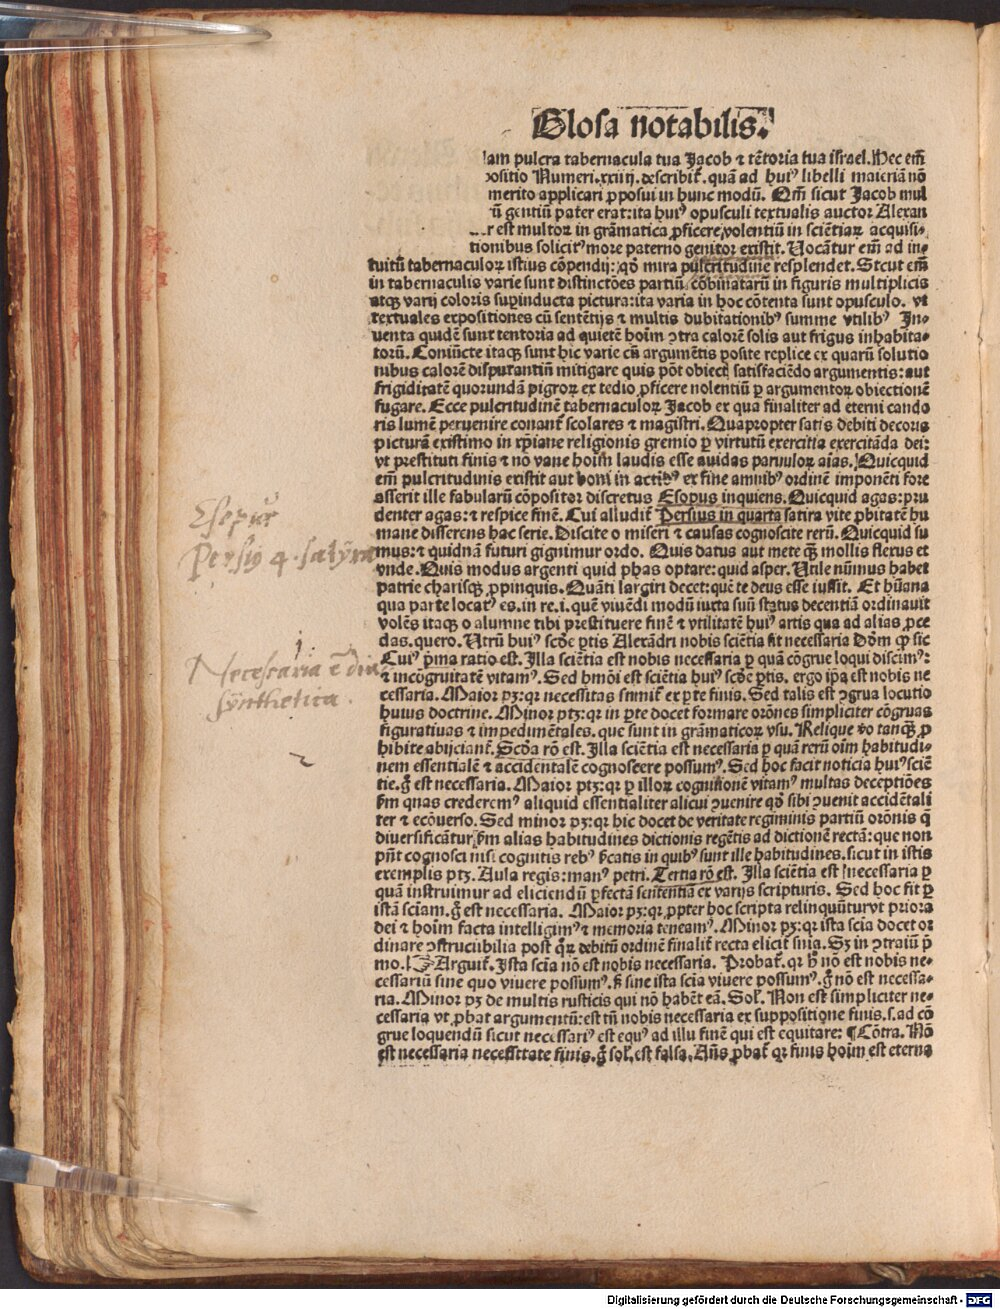 Glosa notabilis.
am pulcra tabernacula tua Jacob ⁊ tētoria tua israel. Hec em̄
ositio Numeri .xxiiij. describit̄. quā ad huiꝰ libelli materiā nō
merito applicari ꝓposui in hunc modū. Qm̄ sicut Jacob mul
ū gentiū pater erat: ita huiꝰ opusculi textualis auctor Alexan
r est multoꝝ in grāmatica ꝓficere volentiū in sciētiaꝝ acquisi-
tionibus solicitꝰ more paterno genitor existit. Uocātur em̄ ad in-
tuitū tabernaculoꝝ istius cōpendij: qď mira pulcritudine resplendet. Sicut em̄
in tabernaculis varie sunt distinctōes partiū cōbinatarū in figuris multiplicis
atqꝫ varij coloris suꝑinducta pictura: ita varia in hoc cōtenta sunt opusculo. vt
textuales expositiones cū sentētijs ⁊ multis dubitationibꝰ summe vtilibꝰ In-
uenta quidē sunt tentoria ad quietē hoīm ↄtra calorē solis aut frigus inhabita-
torū. Coniūcte itaqꝫ sunt hic varie cū argumētis posite replice ex quarū solutio
nibus calorē disputantiū mitigare quis pōt obiectꝭ satisfaciēdo argumentis: aut
frigiditatē quorundā pigroꝝ ex tedio ꝓficere nolentiū ꝑ argumentoꝝ obiectionē
fugare. Ecce pulcritudinē tabernaculoꝝ Jacob ex qua finaliter ad eterni cando
ris lumē peruenire conant̄ scolares ⁊ magistri. Quapropter satis debiti decoris
picturā existimo in xp̄iane religionis gremio ꝑ virtutū exercitia exercitāda dei:
vt prestituti finis ⁊ nō vane hoim̄ laudis esse auidas paruuloꝝ aīas. Quicquid
em̄ pulcritudinis existit aut boni in actibꝰ ex fine amnibꝰ ordinē imponēti fore
asserit ille fabularū cōpositor discretus Esopus inquiens. Quicquid agas: pru
denter agas: ⁊ respice finē. Cui alludit̄ Persius in quarta satira vite ꝓbitatē hu
mane disserens hac serie. Discite o miseri ⁊ causas cognoscite rerū. Quicquid su
mus: ⁊ quidnā futuri gignimur ordo. Quis datus aut mete qꝫ mollis flexus et
vnde. Quis modus argenti quid phas optare: quid asper. Utile nūmus habet
patrie charisqꝫ ꝓpinquis. Quāti largiri decet: quē te deus esse iussit. Et hūana
qua parte locatꝰ es. in re .i. quē viuēdi modū iuxta suū status decentiā ordinauit
volēs itaqꝫ o alumne tibi prestituere finē ⁊ vtilitatē huiꝰ artis qua ad alias ꝓce
das. quero. Utrū huiꝰ scďe ꝑtis Alexādri nobis sciētia sit necessaria Dōm ꝙ sic
Cuiꝰ pͥma ratio est. Illa sciētia est nobis necessaria ꝑ quā cōgrue loqui discimꝰ:
⁊ incōgruitatē vitamꝰ. Sed hmōi est sciētia huiꝰ scďe ꝑtis. ergo ip̄a est nobis ne
cessaria. Maior pꝫ: qꝛ necessitas sumit̄ ex ꝑte finis. Sed talis est ↄgrua locutio
huius doctrine. Minor ptꝫ: qꝛ in ꝑte docet formare orōnes simpliciter cōgruas
figuratiuas ⁊ impedimētales. que sunt in grāmaticoꝝ vsu. Relique vo tanqꝫ ꝓ
hibite abijciant̄. Scďa rō est. Illa sciētia est necessaria ꝑ quā rerū oīm habitudi-
nem essentialē ⁊ accidentalē cognoscere possumꝰ. Sed hoc facit noticia huiꝰ sciē
tie. g̊ est necessaria. Maior ptꝫ: qꝛ ꝑ illoꝝ cognitionē vitamꝰ multas deceptiōes
ẜm quas crederemꝰ aliquid essentialiter alicui ↄuenire qď sibi ↄuenit accidētali
ter ⁊ ecōuerso. Sed minor pꝫ: qꝛ hic docet de veritate regiminis partiū orōnis q̄
diuersificātur ẜm alias habitudines dictionis regētis ad dictionē rectā: que non
pn̄t cognosci nisi cognitis rebꝰ ẜcatis in quibꝰ sunt ille habitudines. sicut in istis
exemplis ptꝫ. Aula regis: manꝰ petri. Tertia rō est. Illa sciētia est necessaria ꝑ
quā instruimur ad eliciendū ꝑfectā sententiā ex varijs scripturis. Sed hoc fit ꝑ
istā sciam. g̊ est necessaria. Maior pꝫ: qꝛ ꝓpter hoc scripta relinquūtur vt priora
dei ⁊ hoīm facta intelligimꝰ ⁊ memoria teneamꝰ. Minor pꝫ: qꝛ ista scia docet or
dinare ↄstructibilia post q̄ꝝ debitū ordinē finalit̄ recta elicit̄ snīa. Sꝫ in ↄtrariū pͥ
mo. ☞ Arguit̄. Ista scīa nō est nobis necessaria. Probat̄. qꝛ hͦ nō est nobis ne-
cessariū sine quo viuere possumꝰ. ẜ sine ista scīa viuere possumꝰ. g̊ nō est necessa-
ria. Minor pꝫ de multis rusticis qui nō habēt eā. Sol̄. Non est simpliciter ne-
cessaria vt ꝓbat argumentū: est tn̄ nobis necessaria ex suppositione finis. s. ad cō
grue loquendū sicut necessariꝰ est equꝰ ad illū finē qui est equitare: ¶ Cōtra. Nō
est necessaria necessitate finis. g̊ sol̄. est falsa. An̄s ꝓbat̄ qꝛ finis hoīm est eterna
Esopus
Persiꝰ 4. satÿra
Necessaria ē
sÿnthetica.
Digitalisierung gefördert durch die Deutsche Forschungsgemeinschaft - DFG